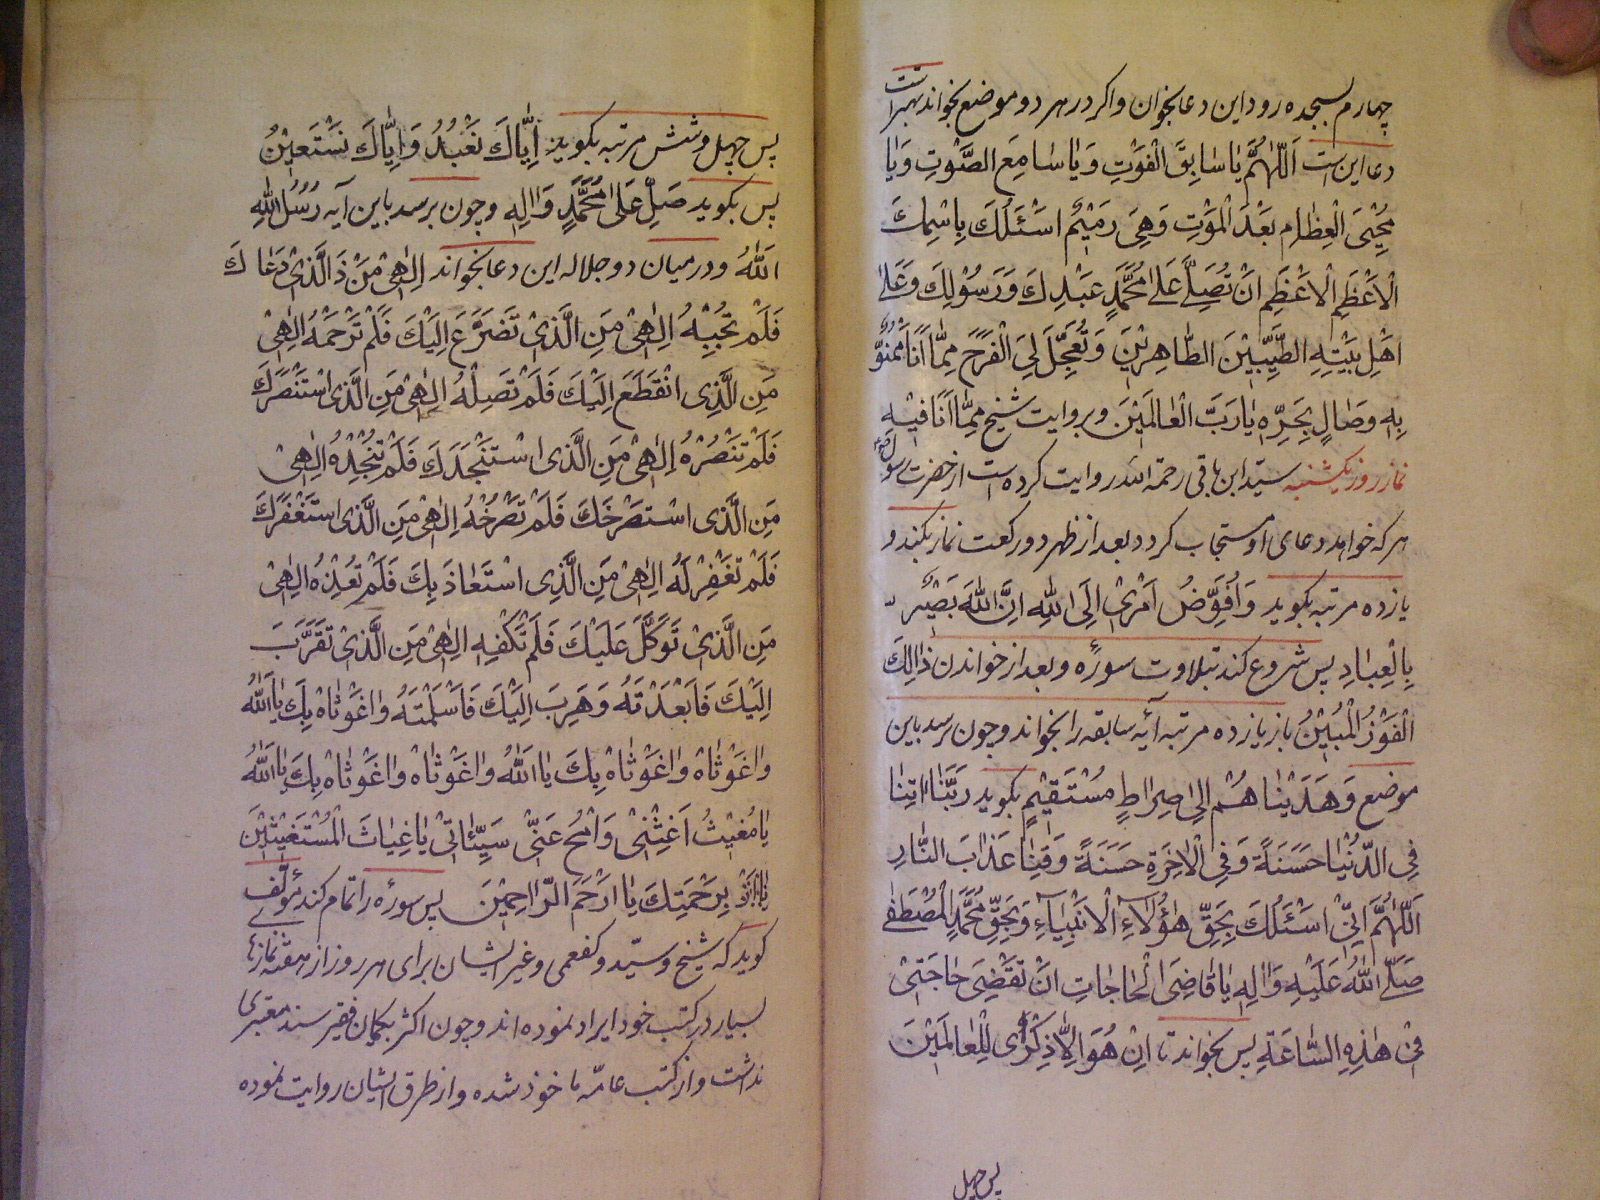 چهارم بسجده رود این دعا بخوان و اکر در هر دو موضع بخواند بهتر است
دعا این است اَللّٰهُمَّ یٰا سٰابِقَ الْفَوْتِ وَیٰا سٰامِعَ الصَّوْتِ وَیٰا
مُحْیِیَ الْعِظٰامِ بَعْدَ الْمَوْتِ وَهِیَ رَمِیْمٌ اَسْئَلُكَ بِاسْمِكَ
الْاَعْظَمِ الْاَعْظَمِ اَنْ تُصَلِّیَ عَلیٰ مُحَمَّدٍ عَبْدِكَ وَرَسُوْلِكَ وَعَلیٰ
اَهْلِ بَیْتِهِ الطَّیِّبِیْنَ الطّٰاهِرِیْنَ وَتُعَجِّلَ لِیَ الْفَرَجَ مِمّٰا اَنَا مَمْنُوٌّ
بِهِ وَصٰالٍ بِحَرِّهِ یٰا رَبَّ الْعٰالَمِیْنَ و بروایت شیخ مِمّٰا اَنَا فِیْهِ
نماز روز یکشنبه سیّد ابن باقی رحمة الله روایت کرده است از حضرت رسول
هر که خواهد دعای او مستجاب کردد بعد از ظهر دو رکعت نماز بکند و
یازده مرتبه بکوید وَاُفَوِّضُ اَمْرِیْ اِلَی اللّٰهِ اِنَّ اللّٰهَ بَصِیْرٌ
بِالْعِبٰادِ پس شروع کند بتلاوت سورهٔ و بعد از خواندن ذٰالِكَ
الْفَوْزُ الْمُبِیْنُ باز یازده مرتبه آیه سابقه را بخواند و چون برسد باین
موضع وَهَدَیْنٰاهُمْ اِلیٰ صِرٰاطٍ مُسْتَقِیْمٍ بکوید رَبَّنٰا اٰتِنٰا
فِی الدُّنْیٰا حَسَنَةً وَفِی الْاٰخِرَةِ حَسَنَةً وَقِنٰا عَذٰابَ النّٰارِ
اَللّٰهُمَّ اِنِّیْ اَسْئَلُكَ بِحَقِّ هٰؤُلٰاءِ الْاَنْبِیٰاءِ وَبِحَقِّ مُحَمَّدٍ الْمُصْطَفیٰ
صَلَّی اللّٰهُ عَلَیْهِ وَاٰلِهِ یٰا قٰاضِیَ الْحٰاجٰاتِ اَنْ تَقْضِیَ حٰاجَتِیْ
فِیْ هٰذِهِ السّٰاعَةِ پس بخواند تا اِنْ هُوَ اِلّٰا ذِکْرٰی لِلْعٰالَمِیْنَ
پس چهل
پس چهل و شش مرتبه بکوید اِیّٰاكَ نَعْبُدُ وَاِیّٰاكَ نَسْتَعِیْنُ
پس بکوید صَلِّ عَلیٰ مُحَمَّدٍ وَاٰلِهِ و چون برسد باین آیه رُسُلُ اللّٰهِ
اَللّٰهُ و در میان دو جلاله این دعا بخواند اِلٰهِیْ مَنْ ذَا الَّذِیْ دَعٰاكَ
فَلَمْ تُجِبْهُ اِلٰهِیْ مَنِ الَّذِیْ تَضَرَّعَ اِلَیْكَ فَلَمْ تَرْحَمْهُ اِلٰهِیْ
مَنِ الَّذِی انْقَطَعَ اِلَیْكَ فَلَمْ تَصِلْهُ اِلٰهِیْ مَنِ الَّذِی اسْتَنْصَرَكَ
فَلَمْ تَنْصُرْهُ اِلٰهِیْ مَنِ الَّذِی اسْتَنْجَدَكَ فَلَمْ تُنْجِدْهُ اِلٰهِیْ
مَنِ الَّذِی اسْتَصْرَخَكَ فَلَمْ تَصْرُخْهُ اِلٰهِیْ مَنِ الَّذِی اسْتَغْفَرَكَ
فَلَمْ تَغْفِرْ لَهُ اِلٰهِیْ مَنِ الَّذِی اسْتَعٰاذَ بِكَ فَلَمْ تُعِذْهُ اِلٰهِیْ
مَنِ الَّذِیْ تَوَکَّلَ عَلَیْكَ فَلَمْ تَکْفِهِ اِلٰهِیْ مَنِ الَّذِیْ تَقَرَّبَ
اِلَیْكَ فَاَبْعَدْتَهُ وَهَرَبَ اِلَیْكَ فَاَسْلَمْتَهُ وٰاغَوْثٰاهْ بِكَ یٰا اَللّٰهُ
وٰاغَوْثٰاهْ وٰاغَوْثٰاهْ بِكَ یٰا اَللّٰهُ وٰاغَوْثٰاهْ وٰاغَوْثٰاهْ بِكَ یٰا اَللّٰهُ
یٰا مُغِیْثُ اَغِثْنِیْ وَامْحُ عَنِّیْ سَیِّئٰاتِیْ یٰا غِیٰاثَ الْمُسْتَغِیْثِیْنَ
بِرَحْمَتِكَ یٰا اَرْحَمَ الرّٰاحِمِیْنَ پس سورهٔ را تمام کند مؤلف
کوید که شیخ و سیّد و کفعمی و غیر ایشان برای هر روز از هفته نمازها
بسیار در کتب خود ایراد نموده اند و چون اکثر بکمان فقیر سند معتبری
نداشت و از کتب عامّه ماخوذ شده و از طرق ایشان روایت نموده